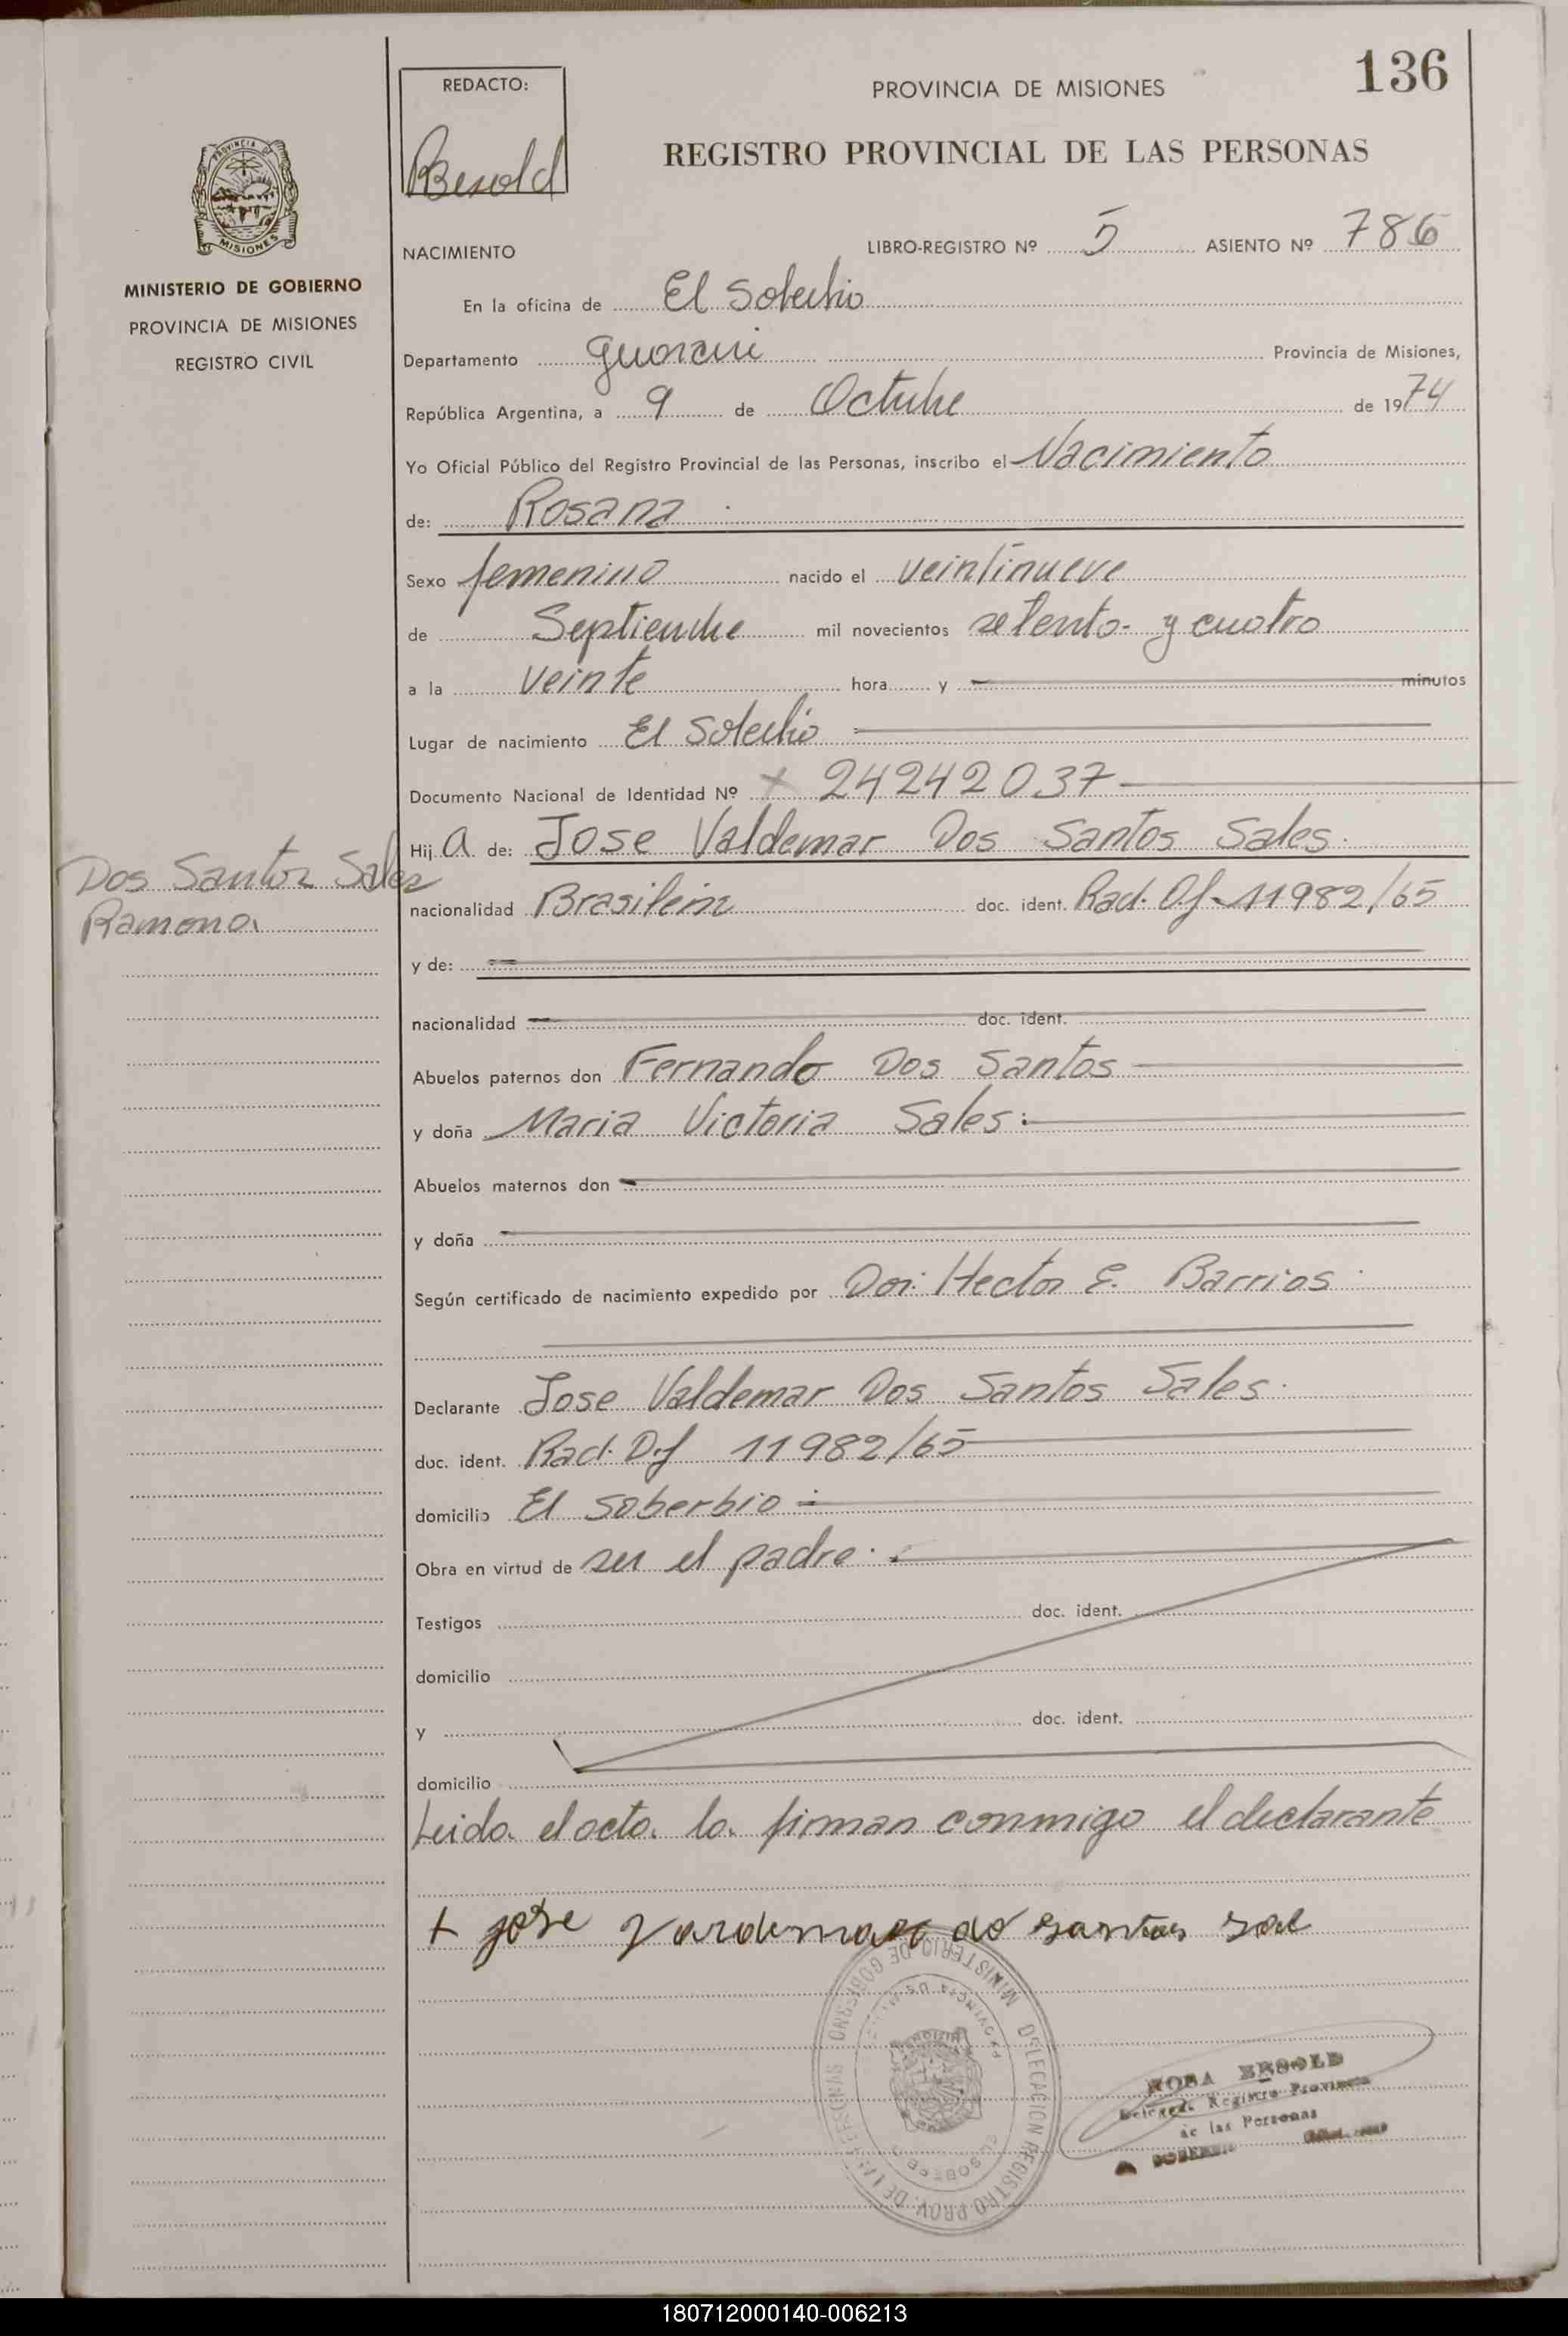 136
REDACTO:
PROVINCIA DE MISIONES
Besold
REGISTRO PROVINCIAL DE LAS PERSONAS
PROVINCIA DE
MISIONES
MINISTERIO DE GOBIERNO
PROVINCIA DE MISIONES
REGISTRO CIVIL
NACIMIENTO LIBRO-REGISTRO Nº 5 ASIENTO Nº 786
En la oficina de El Soberbio
Departamento Guarani Provincia de Misiones,
República Argentina, a 9 de Octubre de 1974
Yo Oficial Público del Registro Provincial de las Personas, inscribo el Nacimiento
de: Rosana
Sexo femenino nacido el veintinueve
de Septiembre mil novecientos setenta y cuatro
a la veinte hora y minutos
Lugar de nacimiento El Soberbio
Documento Nacional de Identidad Nº 24242037
Hija de: Jose Valdemar Dos Santos Sales.
Dos Santos Sales
Ramona
nacionalidad doc. ident. Rad. Of. 11982/65
y de:
nacionalidad doc. ident.
Abuelos paternos don Fernando Dos Santos
y doña Maria Victoria Sales:
Abuelos maternos don
y doña
Según certificado de nacimiento expedido por Hector E. Barrios
Declarante Jose Valdemar Dos Santos Sales.
doc. ident. Rad. Of 11982/65
domicilio El Soberbio
Obra en virtud de ser el padre.
Testigos doc. ident.
domicilio
y doc. ident.
domicilio
Leida el acta la firman conmigo el declarante
+ jose
MINISTERIO DE GOBIERNO DELEGACION REGISTRO PROV. DE LAS PERSONAS
PROVINCIA DE
ROSA BESOLD
Registro Provincial
de las Personas
SOBERBIO
180712000140-006213